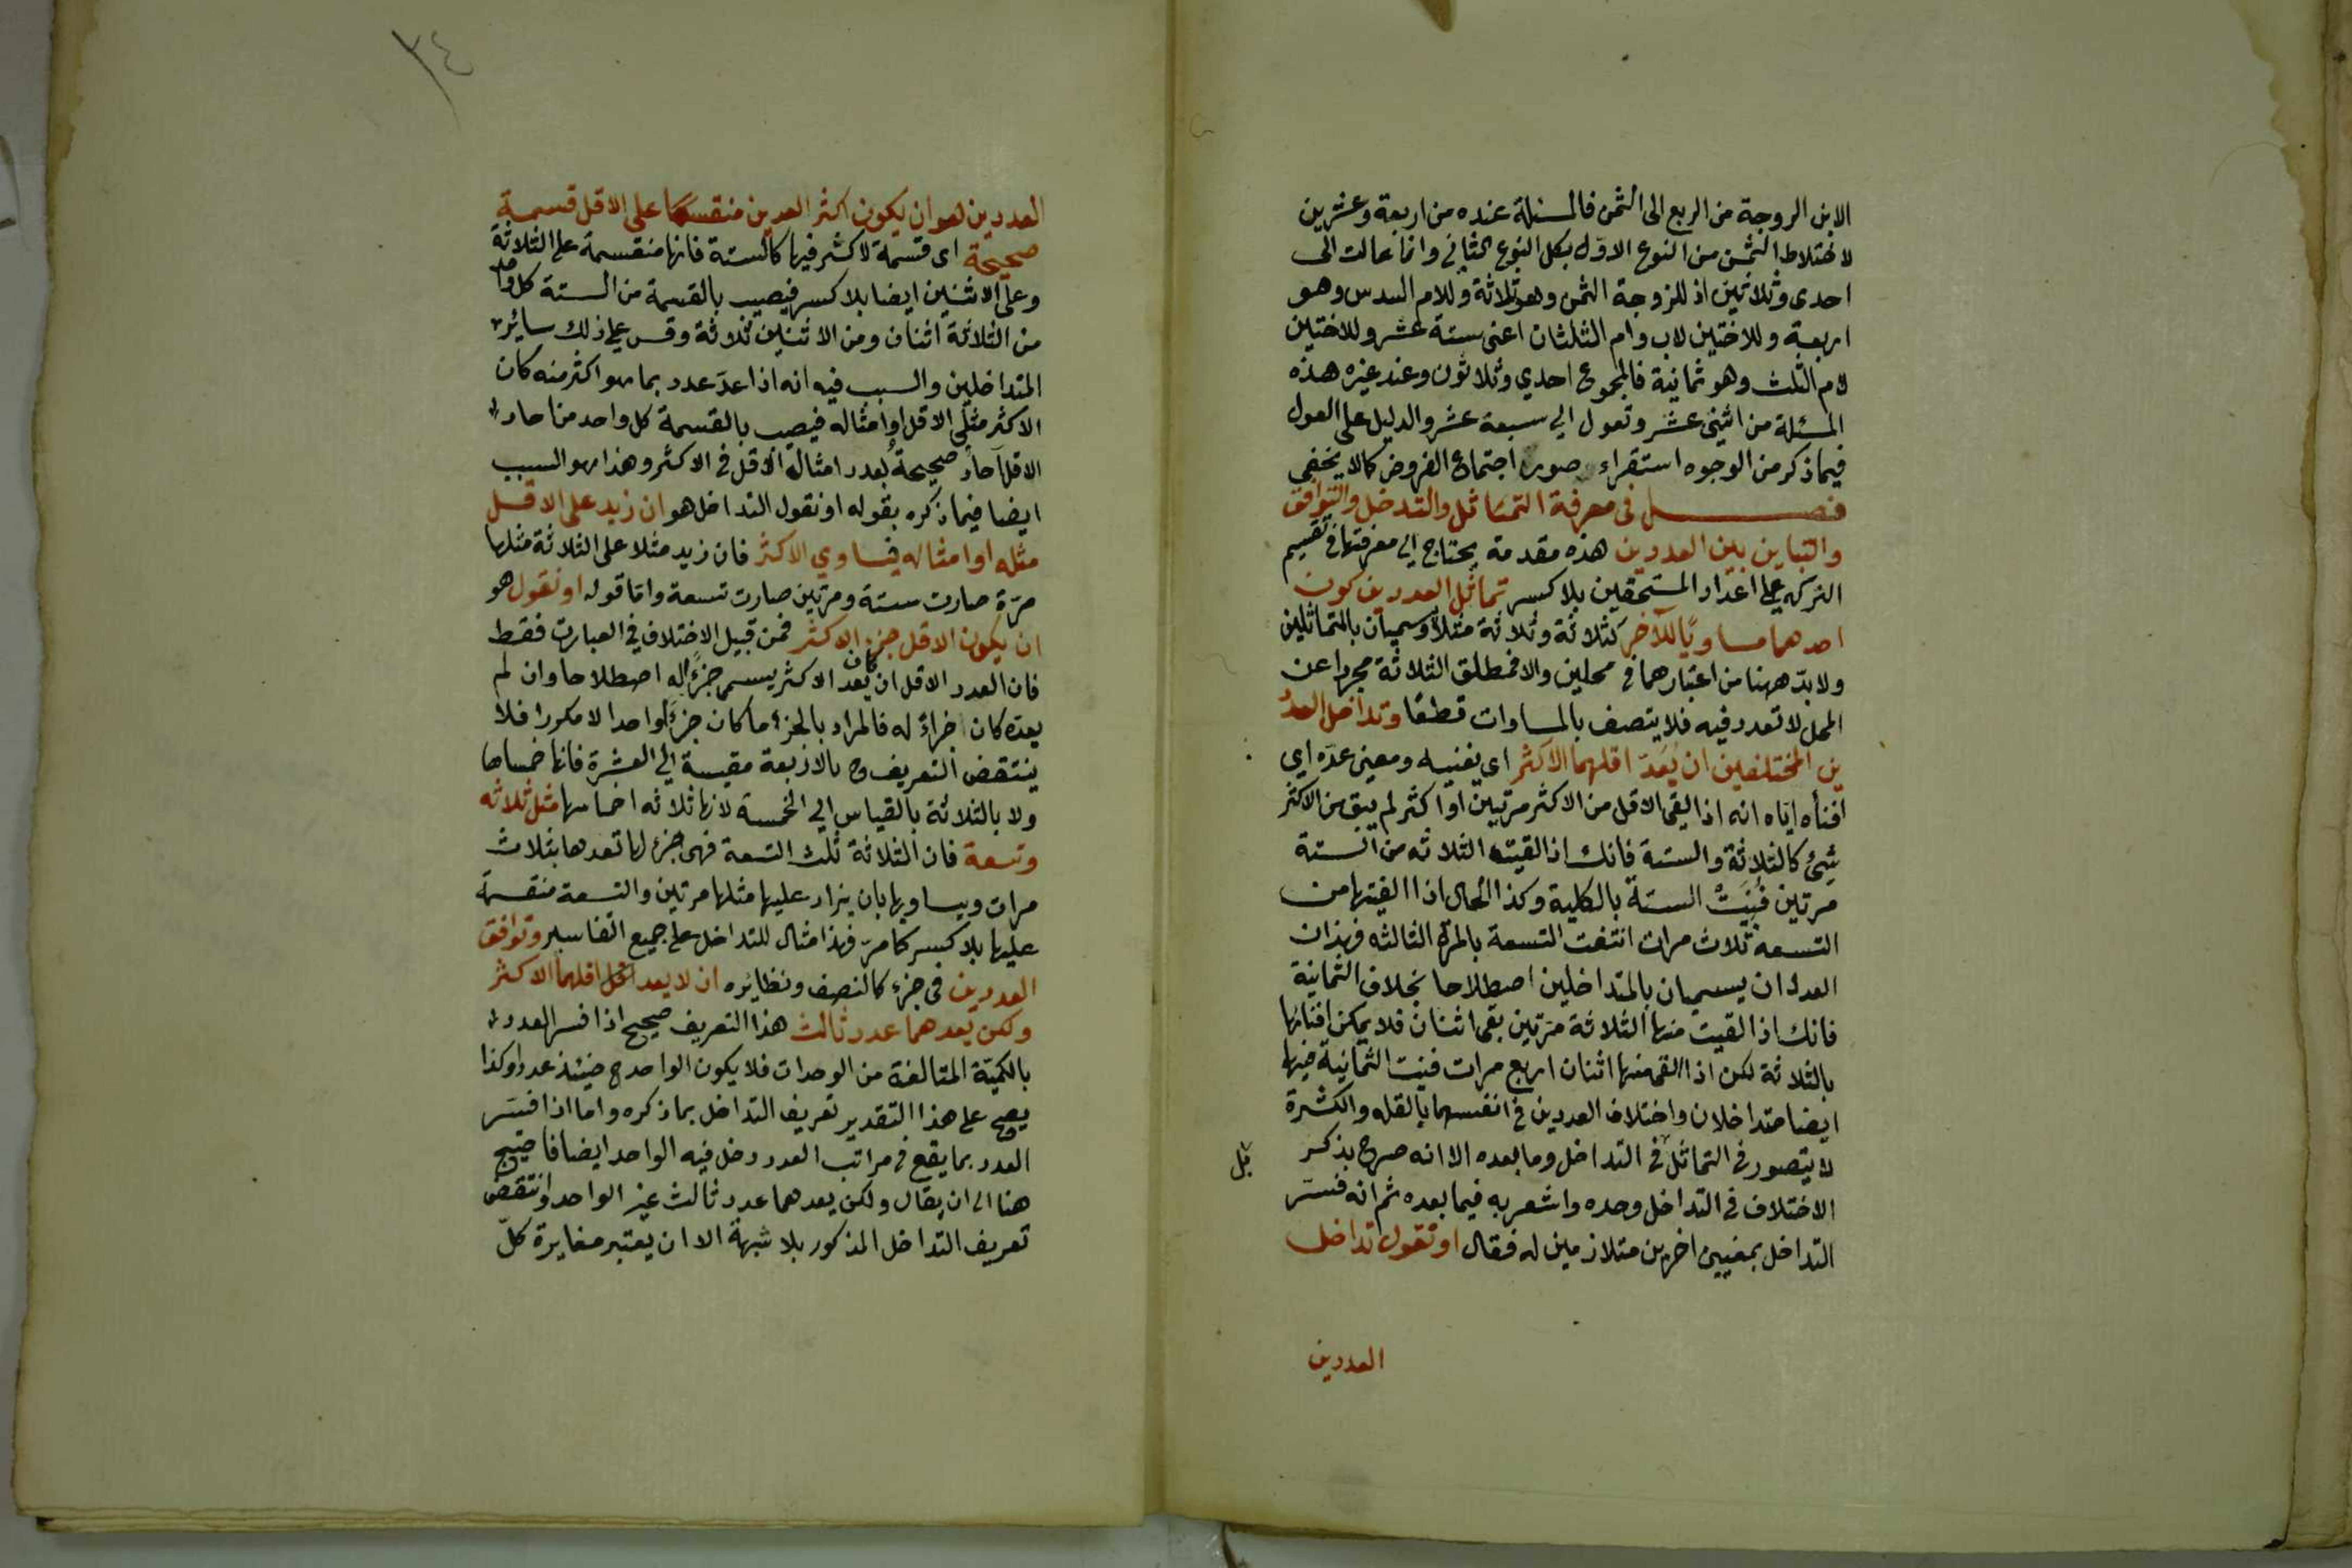 الابن الزوجة من الربع الى الثمن فالمسئلة عنده من اربعة وعشرين
لاختلاط الثمن من النوع الاوّل بكل النوع الثاني وانما عالت الى
احدى وثلاثين اذ للزوجة الثمن وهو ثلاثة وللام السدس وهو
اربعة وللاختين لاب وام الثلثان اعنى ستة عشر وللاختين
لام الثلث وهو ثمانية فالمجموع احدي وثلاثون وعند غيره هذه
المسئلة من اثنى عشر وتعول الي سبعة عشر والدليل على العول
فيما ذكر من الوجوه استقراء صور اجتماع الفروض كما لا يخفى
فصل فى معرفة التماثل والتدخل والتوافق
والتباين بين العددين هذه مقدمة يحتاج الي معرفتها في تقسيم
التركه علي اعداد المستحقين بلا كسر تماثل العددين كون
احدهما مساويًا للآخر كثلاثة وثلاثة مثلاً ويسميان بالمتماثلين
ولا بدّ ههنا من اعتبارهما في محلين والا فمطلق الثلاثة مجردا عن
المحل لا تعدد فيه فلا يتصف بالمساوات قطعًا وتداخل العدد
ين المختلفين ان يَعدّ اقلهما الاكثر اى يفنيه ومعنى عدّه اي
افناه ايّاه انه اذا القى الاقل من الاكثر مرتين او اكثر لم يبق من الاكثر
شئ كالثلاثة والستة فانك اذا القيت الثلاثه من الستة
مرتين فَنِيَتْ الستة بالكلية وكذا الحال اذا القيتها من
التسعة ثلاث مرات انتفت التسعة بالمرة الثالثه فهذان
العددان يسميان بالمتداخلين اصطلاحا بخلاف الثمانية
فانك اذا القيت منها الثلاثة مرّتين بقى اثنان فلا يمكن افناؤها
بالثلاثة لكن اذا القى منها اثنان اربع مرات فنيت الثمانية فيها
ايضا متداخلان واختلاف العددين في انفسهما بالقله والكثرة
لا يتصور في التماثل في التداخل وما بعده الا انه صرح بذكر
بل
الاختلاف في التداخل وحده واشعر به فيما بعده ثم انه فسّر
التداخل بمعنيين اخرين متلازمين له فقال او نقول تداخل
العددين
٣٤
العددين هو ان يكون اكثر العددين منقسما على الاقل قسمة
صحيحة اى قسمة لا كسر فيها كالستة فانها منقسمة على الثلاثة
وعلى الاثنين ايضا بلا كسر فيصيب بالقسمة من الستة كل واحد
من الثلاثة اثنان ومن الاثنين ثلاثة وقس علي ذلك سائر
المتداخلين والسبب فيه انه اذا عدّ عدد بما هو اكثر منه كان
الاكثر مثلى الاقل او امثاله فيصيب بالقسمة كل واحد من احاد
الاقل آحادٌ صحيحةٌ بعدد امثالة الاقل في الاكثر وهذا هو السبب
ايضا فيما ذكره بقوله او نقول التداخل هو ان زيد على الاقل
مثله او امثاله فيساوي الاكثر فان زيد مثلا على الثلاثة مثلها
مرّة صارت ستة ومرتين صارت تسعة وامّا قوله او نقول هو
ان يكون الاقل جزء الاكثر فمن قبيل الاختلاف في العبارت فقط
فان العدد الاقل ان كان يعد الاكثر يسمى جزءً اله اصطلاحا وان لم
يعدّه كان اجزاءً له فالمراد بالجزء ما كان جزءً واحدا لا مكررا فلا
ينتقض التعريف وح بالاربعة مقيسة الي العشرة فانها خمساها
ولا بالثلاثة بالقياس الي الخمسة لانها ثلاثه اخماسها مثل ثلاثه
وتسعة فان الثلاثة ثلث التسعة فهى جزء لها تعدها بثلاث
مرات ويساويها بان يزاد عليها مثلها مرتين والتسعة منقسمة
عليها بلا كسر كما مرّ فهذا مثال للتداخل على جميع التفاسير وتوافق
العددين فى جزء كالنصف ونظائره ان لا يعد اقلهما الاكثر
ولكن يعدهما عدد ثالث هذا التعريف صحيح اذا فسر العدد
بالكميّة المتالفة من الوحدات فلا يكون الواحد ح حينئذ عددا وكذا
يصح على هذا التقدير تعريف التداخل بما ذكره واما اذا فسّر
العدد بما يقع في مراتب العدد دخل فيه الواحد ايضا فاحتيج
هنا الى ان يقال ولكن يعدهما عدد ثالث غير الواحد وانتقض
تعريف التداخل المذكور بلا شبهة الا ان يعتبر مغايرة كلّ